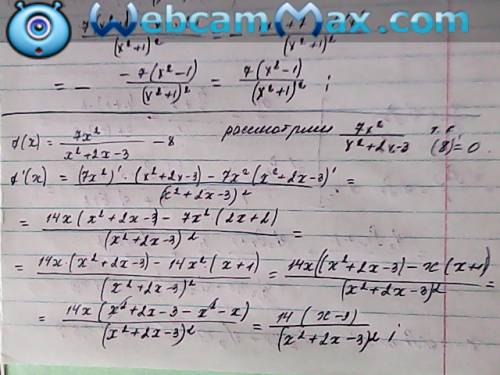 WebcamMax.com
(x²+1)² (x²+1)²
= - -7(x²-1)/(x²+1)² = 7(x²-1)/(x²+1)² ;
f(x) = 7x²/(x²+2x-3) - 8 рассмотрим 7x²/(x²+2x-3) т.к. (8)'=0
f'(x) = ((7x²)'·(x²+2x-3) - 7x²(x²+2x-3)')/(x²+2x-3)² =
= (14x(x²+2x-3) - 7x²(2x+2))/(x²+2x-3)² =
= (14x·(x²+2x-3) - 14x²·(x+1))/(x²+2x-3)² = (14x((x²+2x-3) - x(x+1))/(x²+2x-3)² =
= (14x(x²+2x-3-x²-x))/(x²+2x-3)² = 14(x-3)/(x²+2x-3)² ;